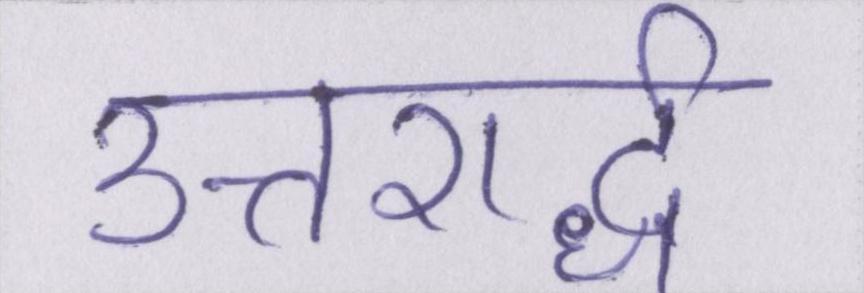 उत्तरार्द्ध